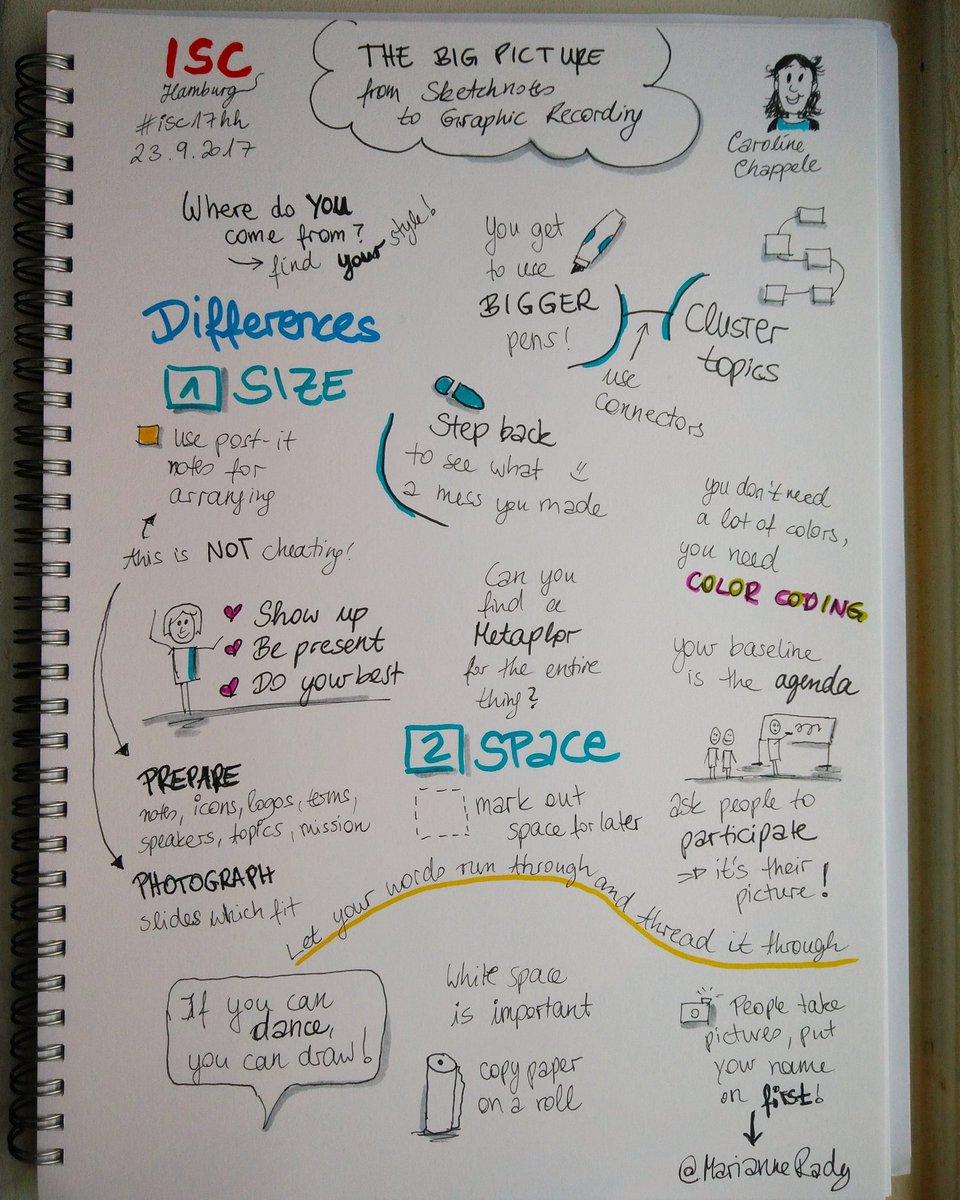 ISC
Hamburg
#isc17hh
23.9.2017
THE BIG PICTURE
from Sketchnotes
to Graphic Recording
Caroline
Chappele
Where do YOU
come from?
→ find your style!
You get
to use
BIGGER
pens!
use
connectors
Cluster
topics
Differences
1 SIZE
use post-it
notes for
arranging
this is NOT cheating!
Step back
to see what
a mess you made
you don't need
a lot of colors,
you need
COLOR CODING
Show up
Be present
Do your best
Can you
find a
Metaphor
for the entire
thing?
your baseline
is the agenda
PREPARE
notes, icons, logos, terms,
speakers, topics, mission
PHOTOGRAPH
slides which fit
2 SPACE
mark out
space for later
ask people to
participate
⇒ it's their
picture!
Let your words run through and thread it through
If you can
dance,
you can draw!
White space
is important
copy paper
on a roll
People take
pictures, put
your name
on first!
@MarianneRady